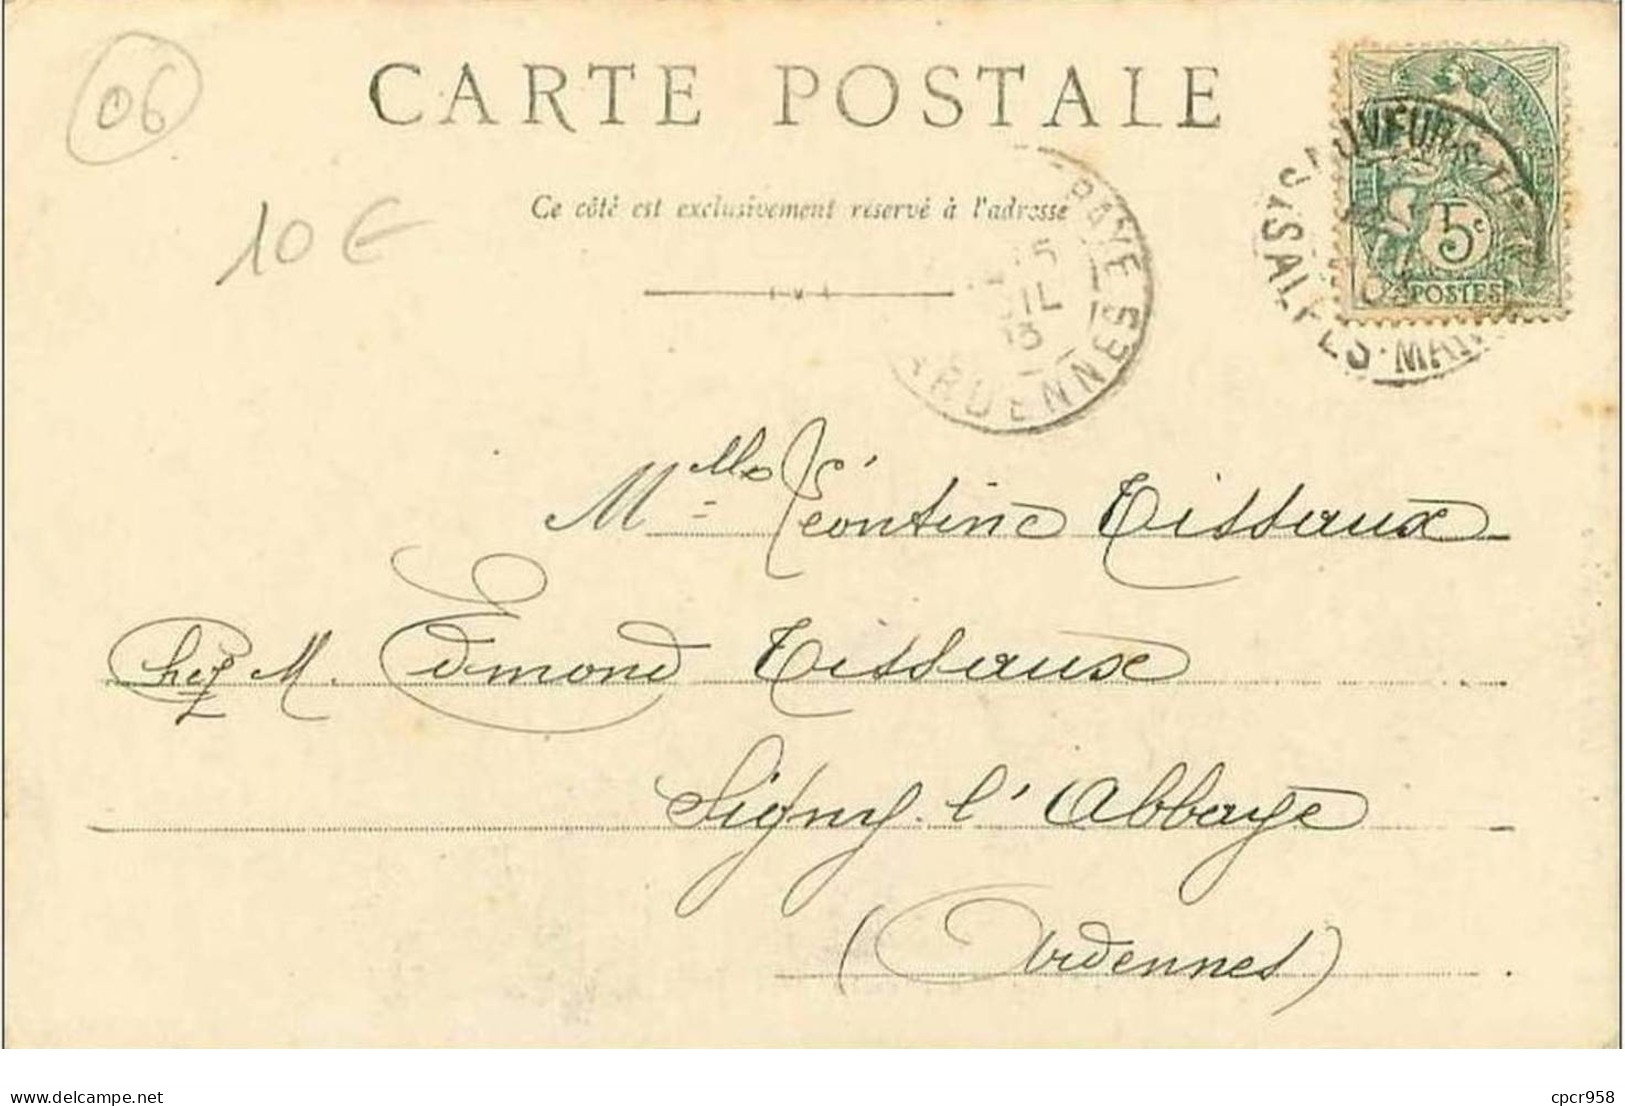 06
CARTE POSTALE
10 €
Ce côté est exclusivement réservé à l'adresse
5c
POSTES
ARDENNES
Mlle Léontine Tissaux
Chez M. Edmond Tissaux
Signy-l'Abbaye
(Ardennes).
www.delcampe.net
cpcr958